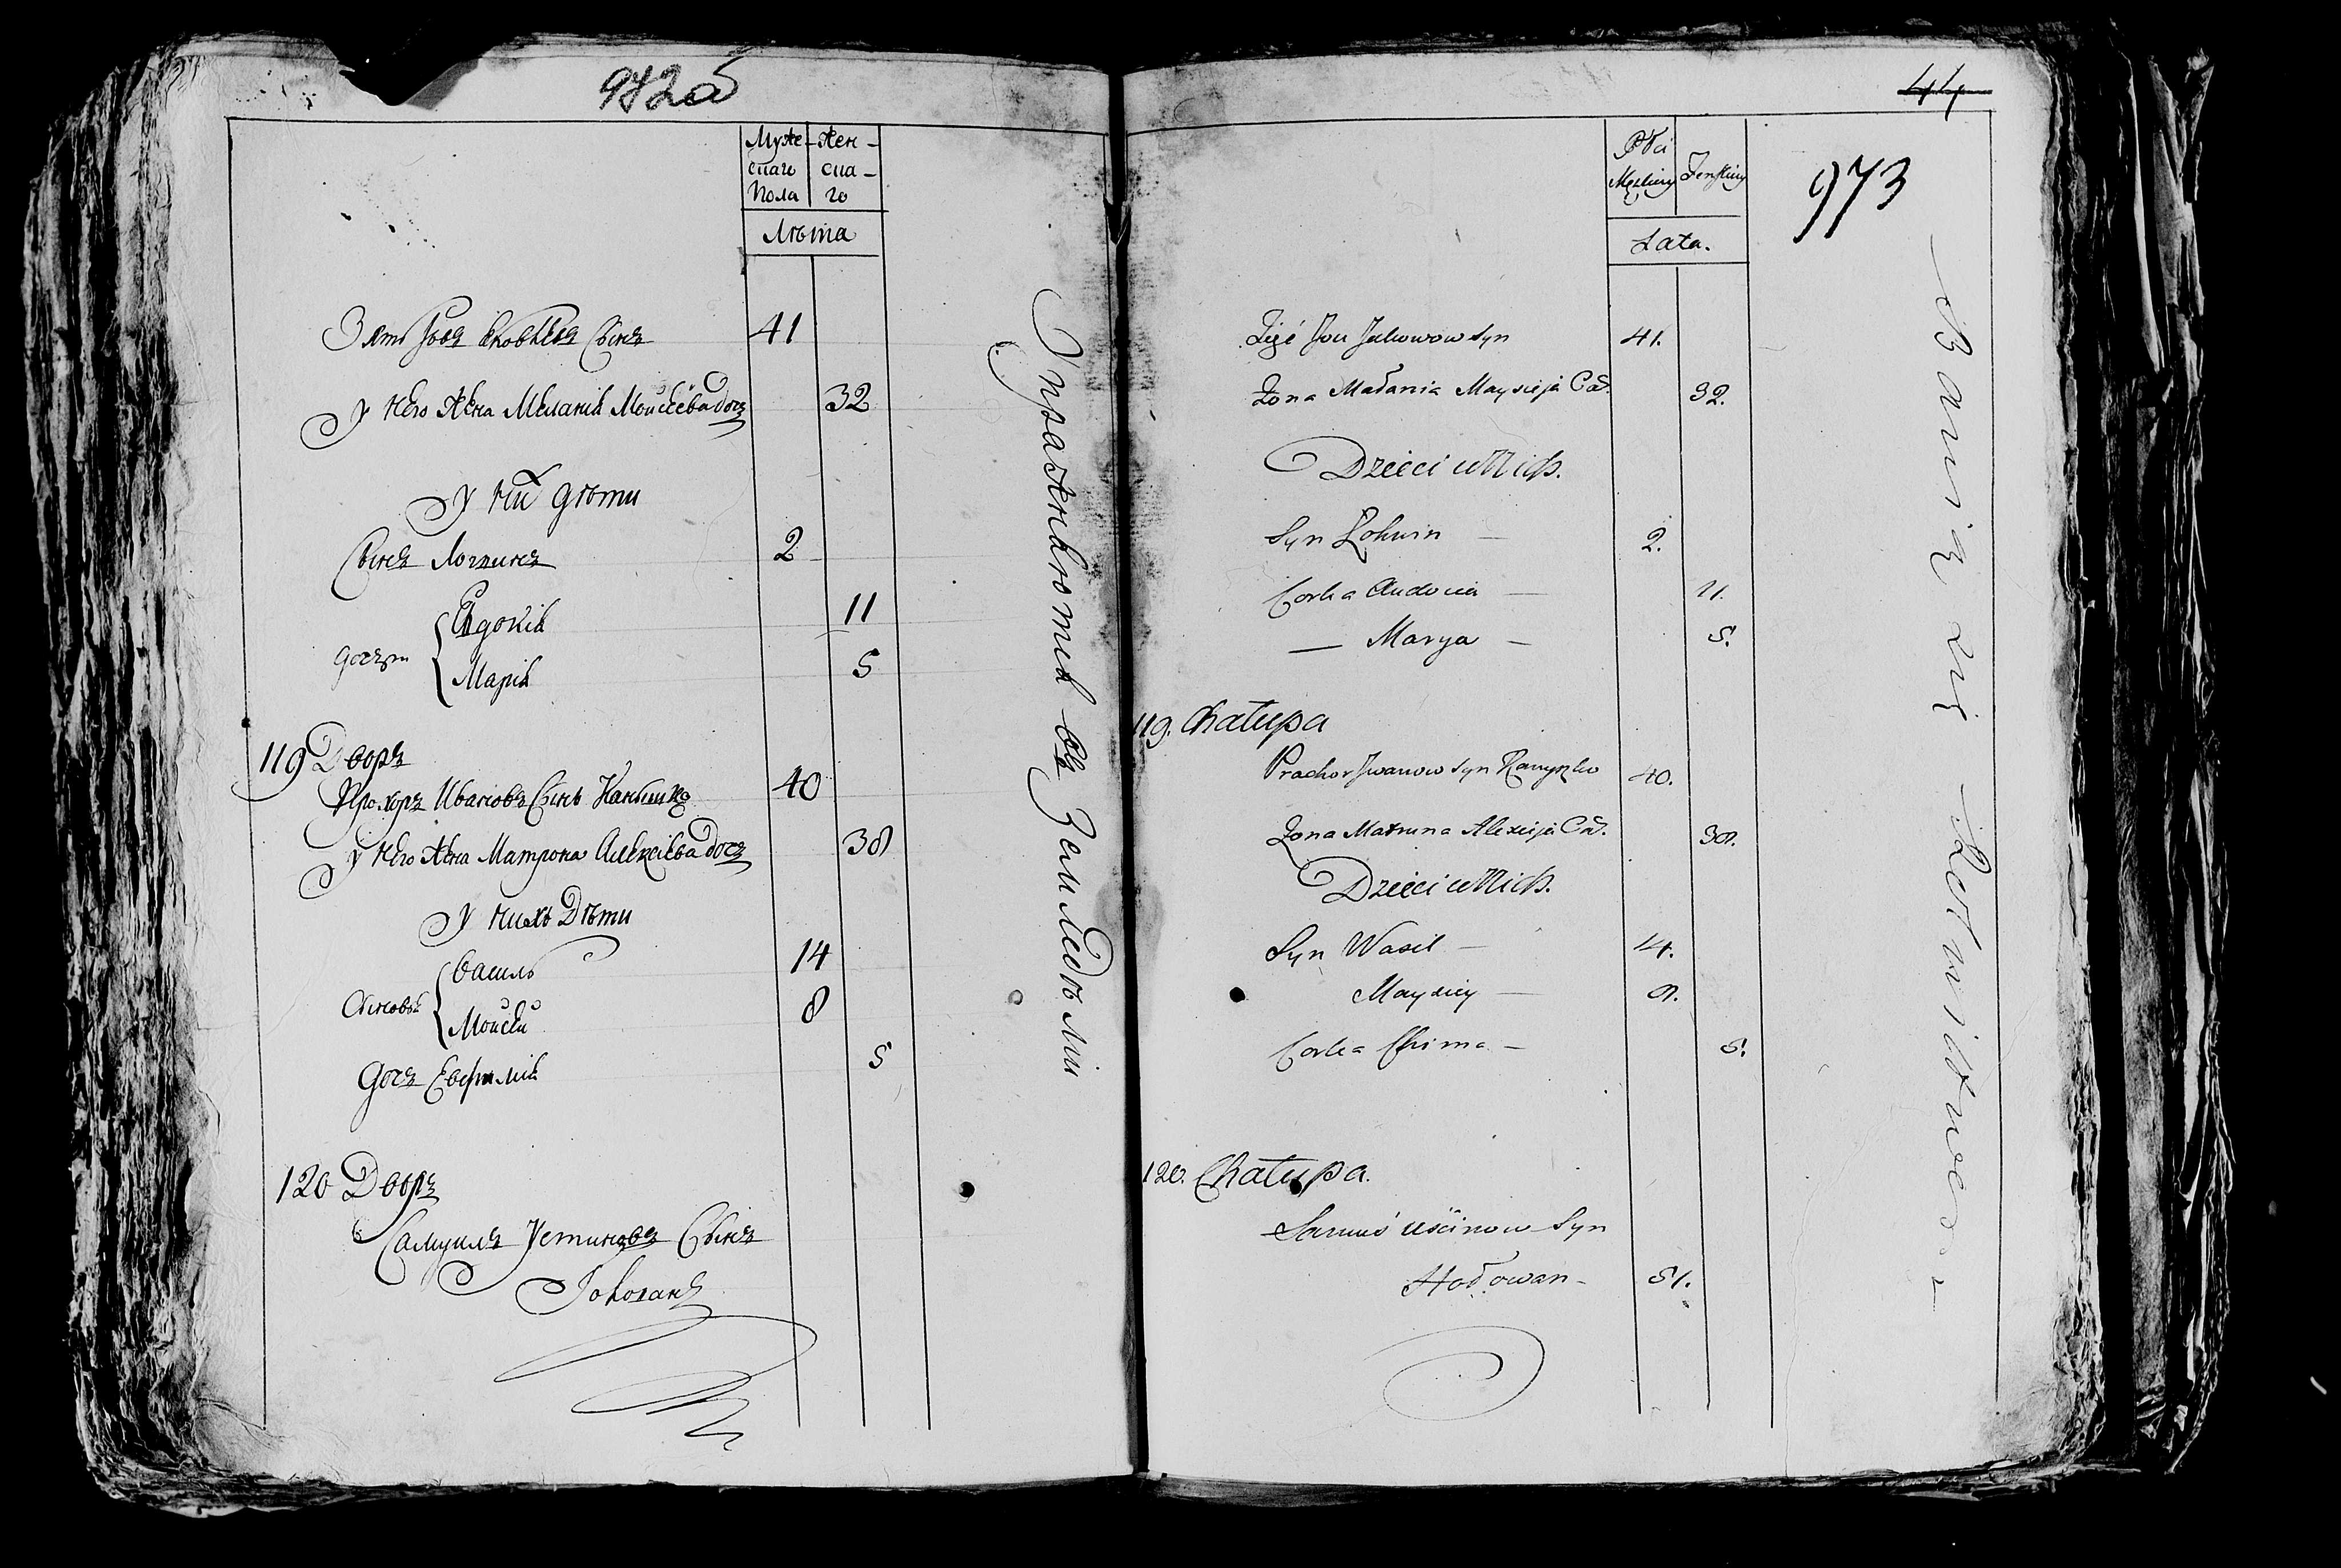 972об
Муже- Жен-
скаго ска-
Пола го
Лѣта
Зять Іовъ Яковлевъ Сынъ 41
У него Жена Меланія Моисеева дочъ 32
У них дѣти
Сынъ Логвинъ 2
дочери
Евдокія 11
Марія 5
119 Дворъ
Прохоръ Ивановъ Сынъ Канышко 40
У него Жена Матрона Алексіева дочъ 38
У нихъ Дѣти
Сыновья
Василь 14
Моисей 8
дочъ Евфимія 5
120 Дворъ
Самуилъ Устиновъ Сынъ
Головань
Упражняются въ Земледѣліи
44
973
Płci
Męzkiey Zenskiey
Lata.
Zięć Jow Jakowow Syn 41.
Zona Małania Maysieja Cór. 32.
Dzieci u Nich.
Syn Łohwin — 2.
Corka Audocia — 11.
— Marya — 5.
119. Chałupa
Prachor Jwanow Syn Kanyszko 40.
Zona Matruna Alexieja Cór. 38.
Dzieci u Nich.
Syn Wasil — 14.
Maysiey — 8.
Corka Chima — 5.
120. Chałupa.
Samuś Uścinow Syn
Hołowan - 51.
Bawią się Rolnictwem